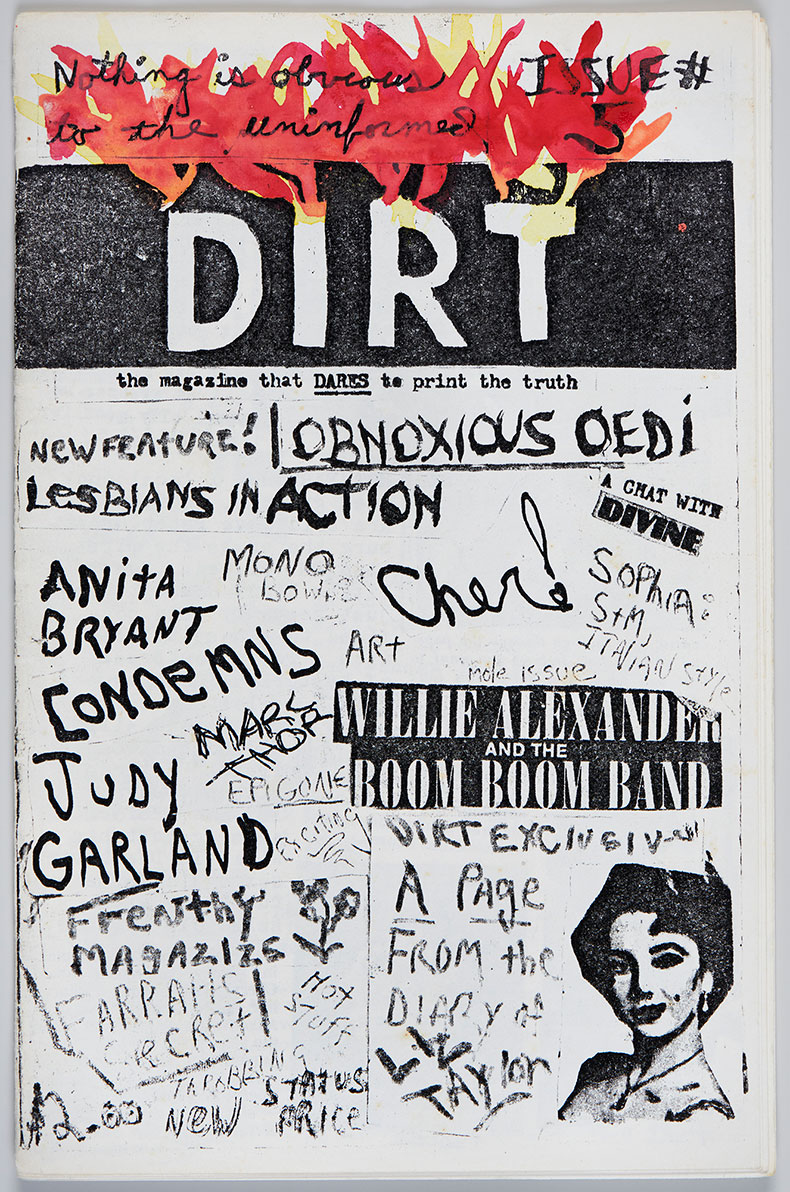 Nothing is obvious
to the uninformed
ISSUE #
5
DIRT
the magazine that DARES to print the truth
NEW FEATURE! OBNOXIOUS OEDI
LESBIANS IN ACTION
A CHAT WITH
DIVINE
MONO
Cher!
SOPHIA:
S+M,
ITALIAN STYLE
ANITA
BRYANT
CONDEMNS
JUDY
GARLAND
ART
mole issue
MARC
THOR
EPIGONE
EXCITING
WILLIE ALEXANDER
AND THE
BOOM BOOM BAND
DIRT EXCLUSIVE
A Page
FROM the
DIARY of
LIZ
TAYLOR
MAGAZIZE
FARRAHS
SECRET
HOT
STUFF
THROBBING
NEW STATUS
PRICE
$2.00